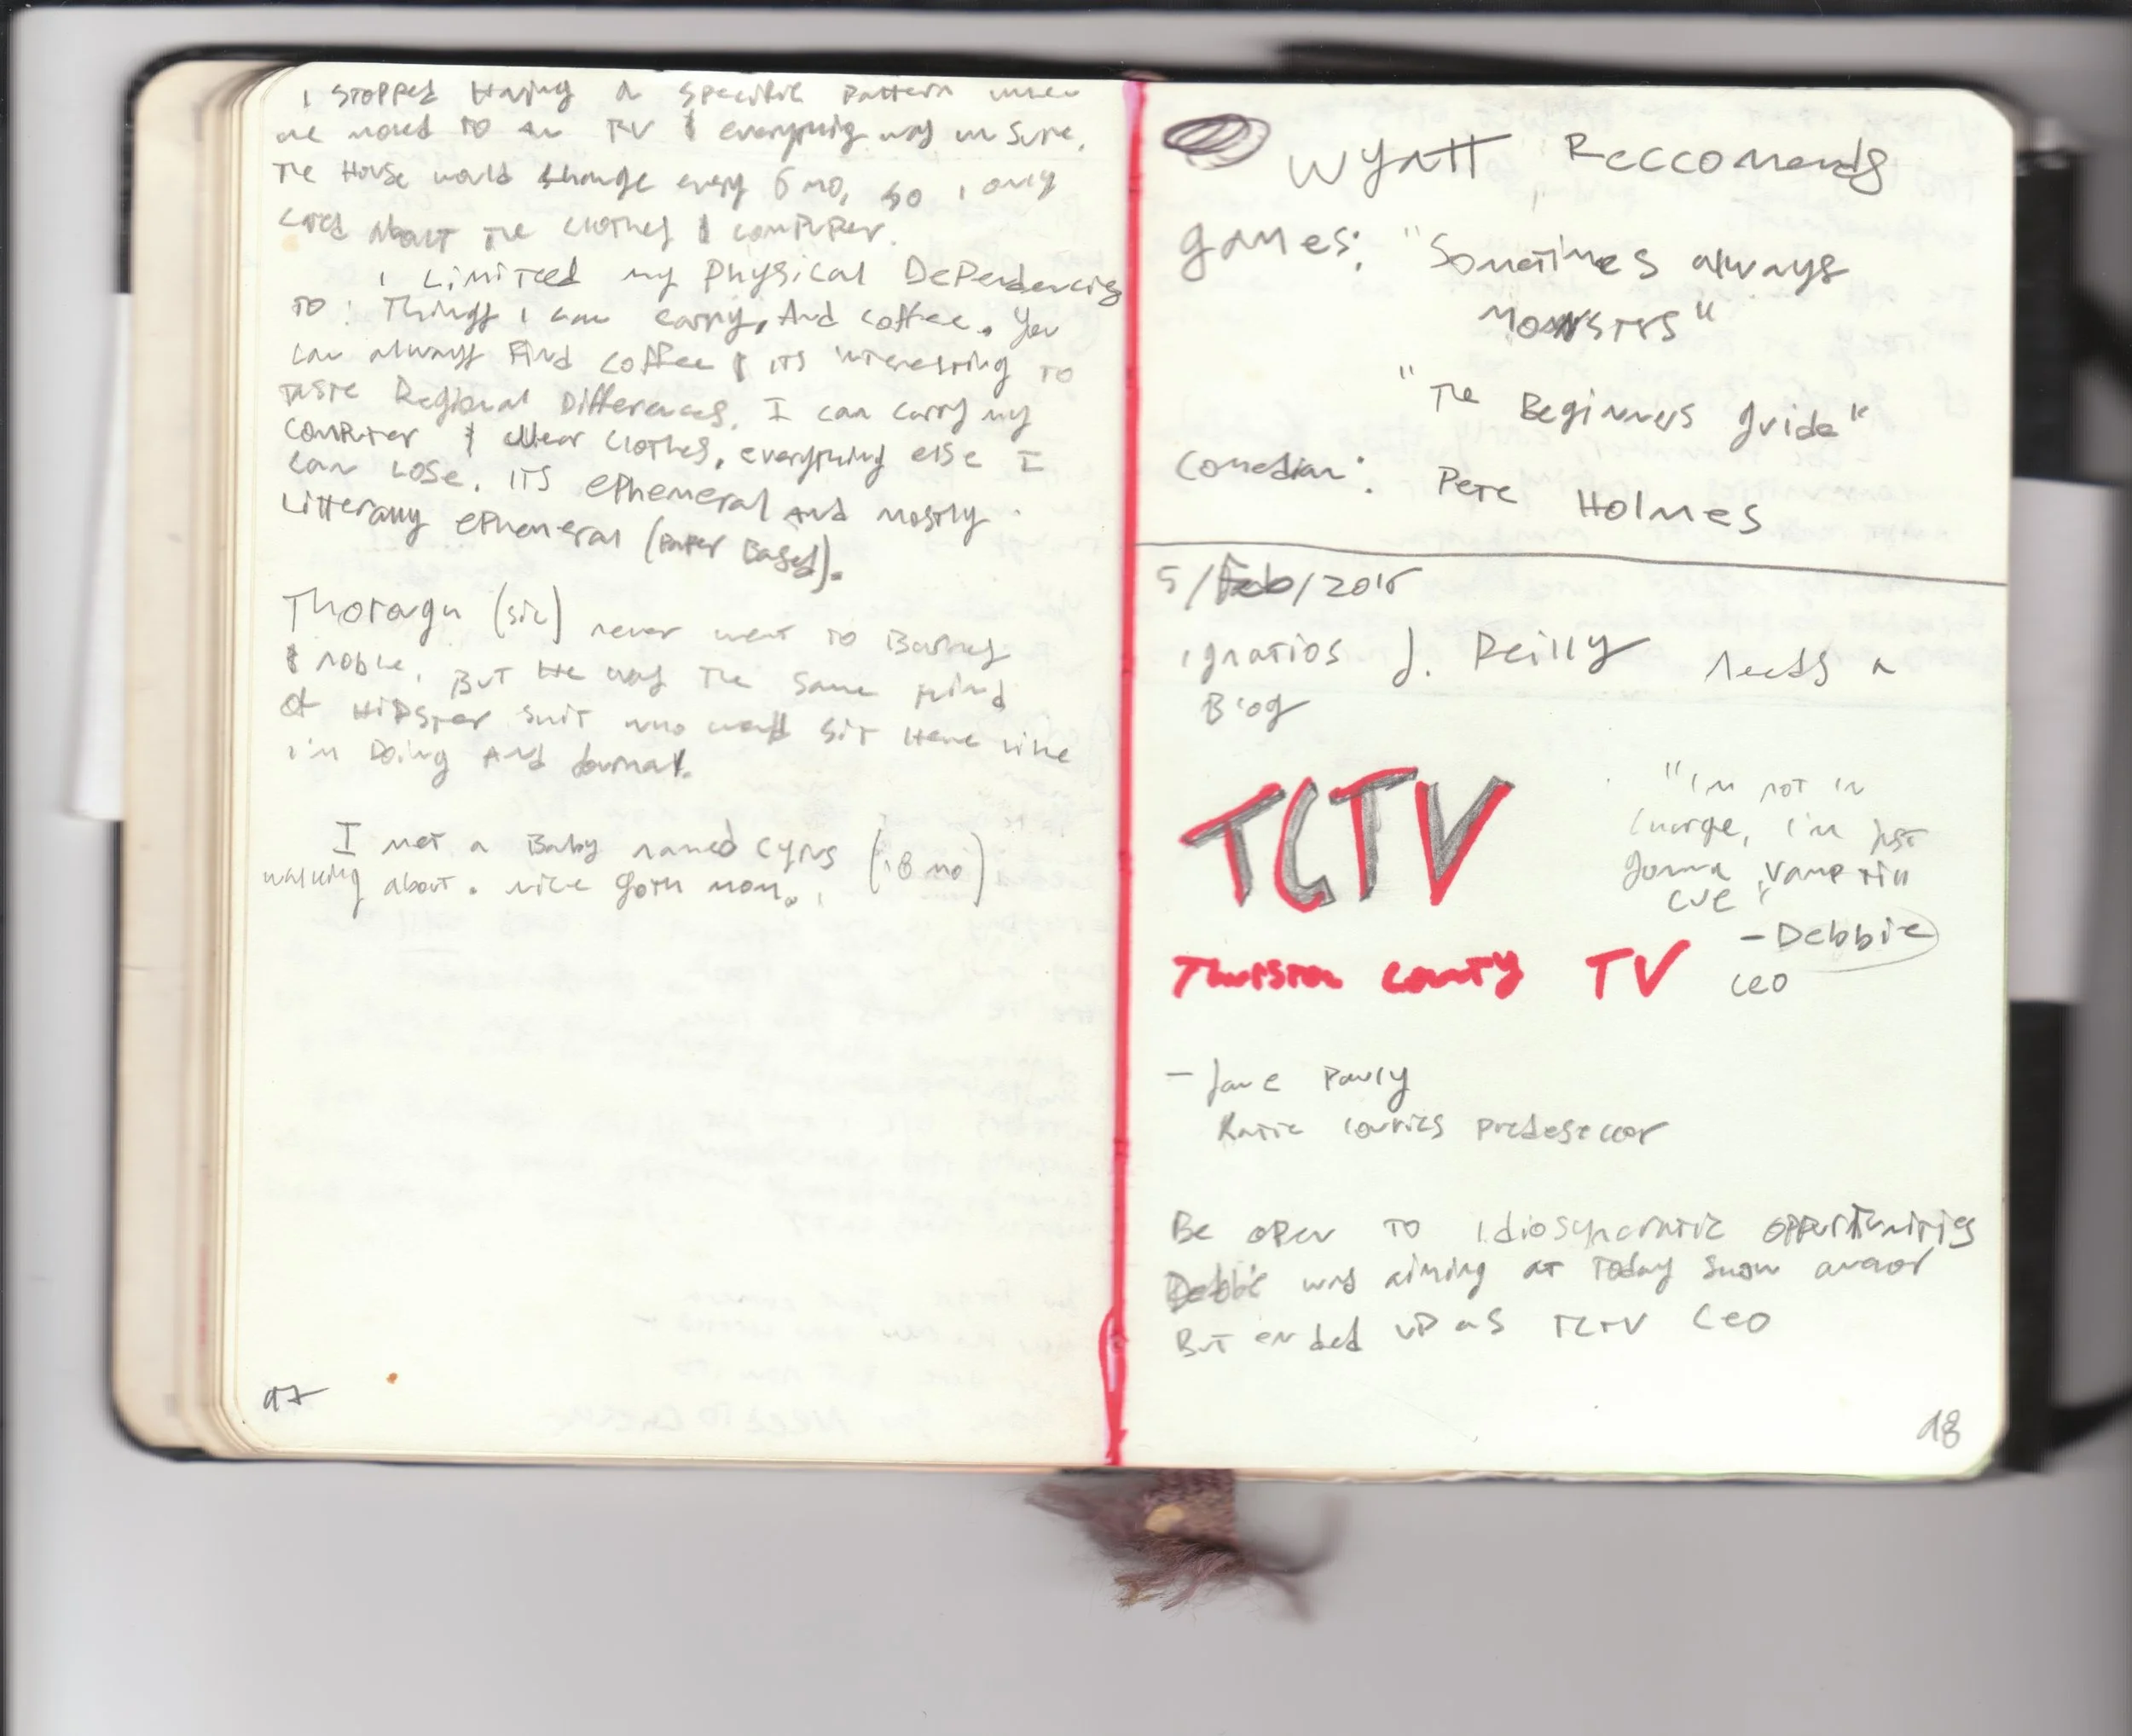 I stopped Having a specific pattern when
we moved to an RV & everything was unsure.
The House would change every 6 mo, so I only
cared about the clothes & computer.
I Limited my Physical Dependencies
To: Things I can carry, And coffee. You
can always Find coffee & its interesting to
taste Regional Differences. I can carry my
computer & wear clothes, everything else I
can lose. ITS ephemeral And mostly
Litterally ephemeral (Paper Based).
(sic) never went to Barnes
& noble, But He was the same kind
of Hipster suit who would sit Here like
i'm Doing And Journal.
I met a Baby named (18 mo)
walking about. nice goth mom.
17
Wyatt Reccomends
games: "Sometimes always
Monsters"
"The Beginners guide"
Comedian: Pete Holmes
5/Feb/2016
Ignatios J. Reilly needs a
Blog
TCTV
"I'm not in
charge, I'm just
gonna vamp till
cue"
-Debbie
CEO
Thurston County TV
- Jane Pauly
Katie Courics predeseccor
Be open to Idiosyncratic opportunities
Debbie was aiming at Today Show anchor
But ended up as TCTV CEO
18